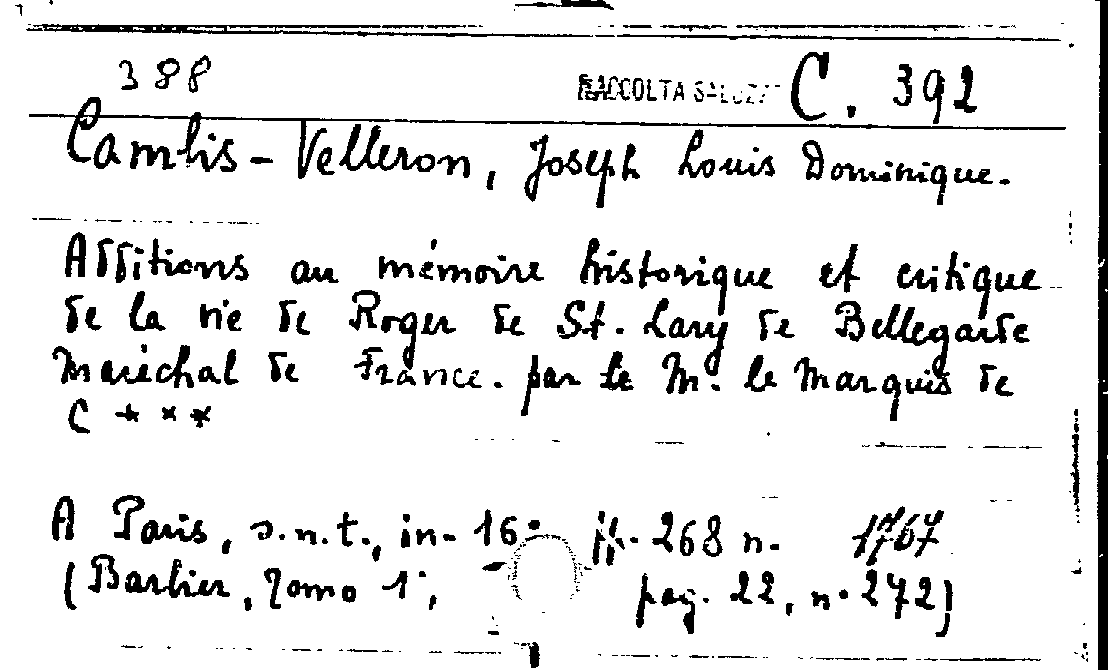 388 RACCOLTA SALUZZO C. 392
Cambis-Velleron, Joseph Louis Dominique.
Additions au mémoire historique et critique
de la vie de Roger de St. Lary de Bellegarde
Maréchal de France. par le M. le Marquis de
C ***
A Paris, s.n.t., in-16° pp. 268 n. 1767
(Barbier, Tomo 1°, pag. 22, n. 272)